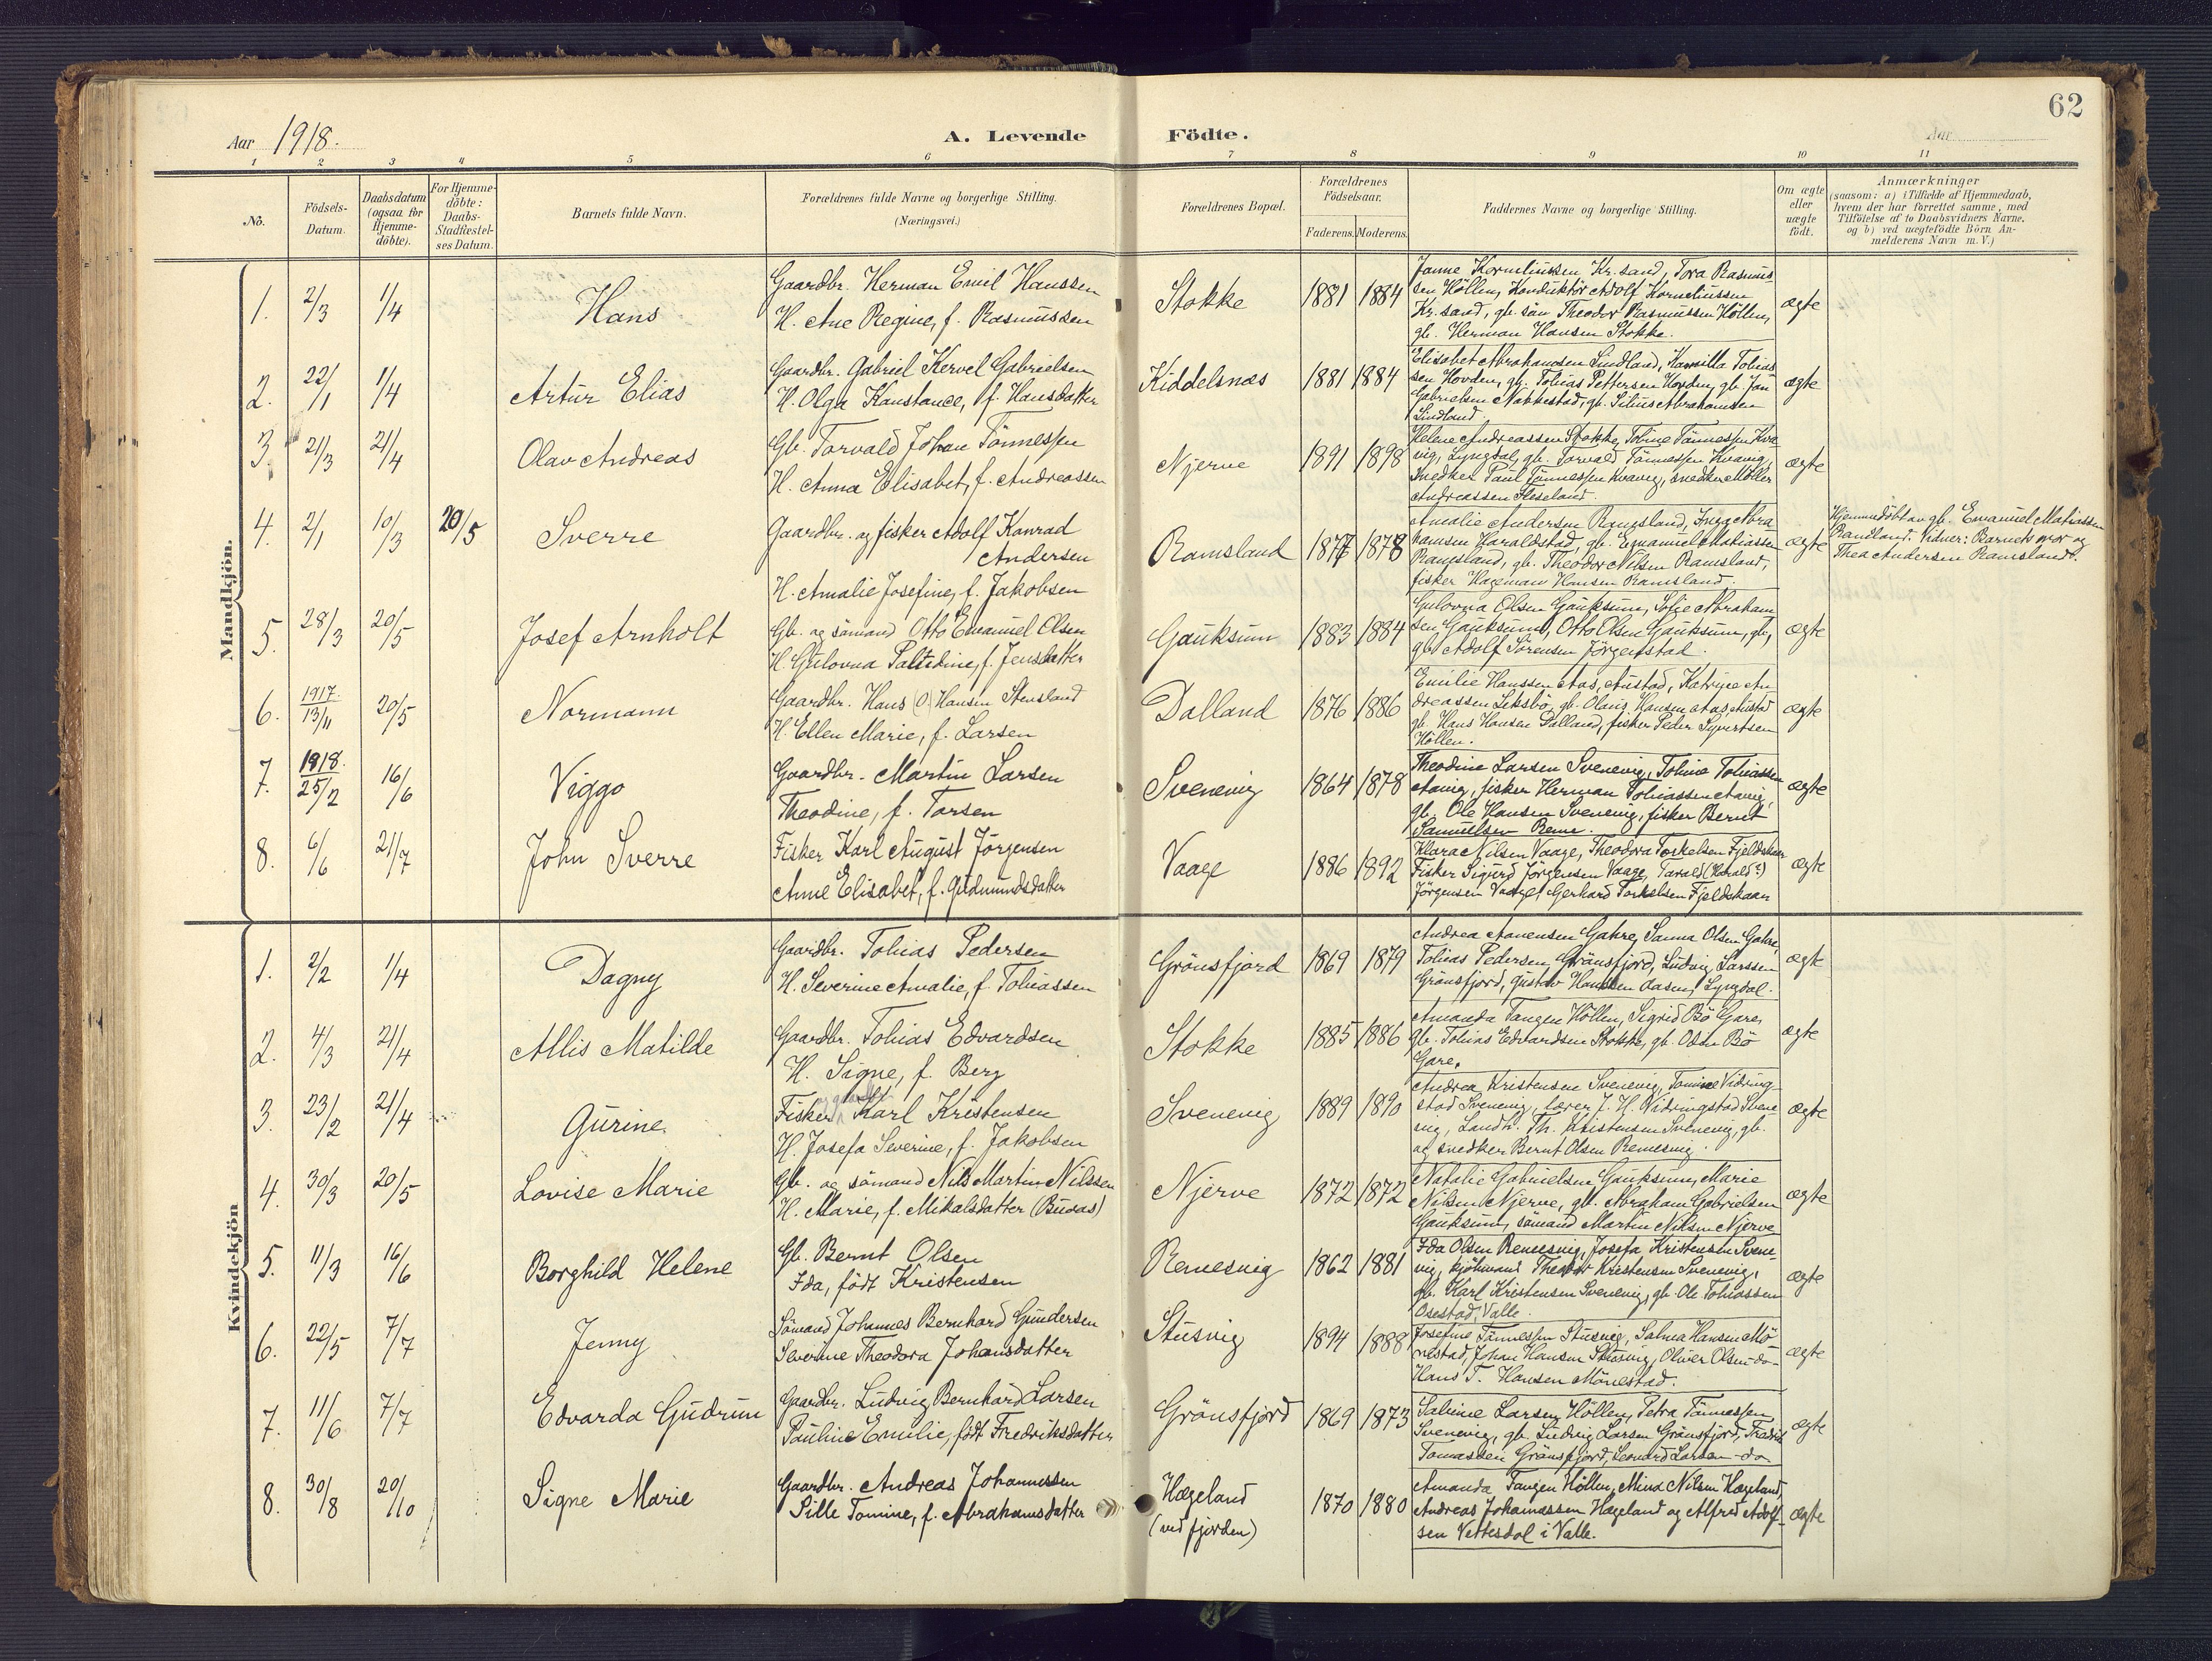 62
Aar 1918.
A. Levende Födte.
Aar
1 2 3 4 5 6 7 8 9 10 11
No.
Födsels-Datum.
Daabsdatum (ogsaa for Hjemme-döbte).
For Hjemme-döbte: Daabs-Stadfæstel-ses Datum.
Barnets fulde Navn.
Forældrenes fulde Navne og borgerlige Stilling. (Næringsvei.)
Forældrenes Bopæl.
Forældrenes Födselsaar.
Faderens. Moderens.
Faddernes Navne og borgerlige Stilling.
Om ægte eller uægte födt.
Anmærkninger
(saasom: a) i Tilfælde af Hjemmedaab, hvem der har forrettet samme, med Tilföielse af to Daabsvidners Navne, og b) ved uægtefödte Börn An-melderens Navn m. V.)
Mandkjön.
1. 2/3 1/4 Hans
Gaardbr. Herman Emil Hanssen
H. Ane Regine, f. Rasmussen
Stokke 1881 1884
Janne Korneliussen Kr.sand, Tora Rasmus-
sen Höllen, Konduktör Adolf Korneliussen
Kr.sand, gb. sön Theodor Rasmussen Höllen,
gb. Herman Hansen Stokke.
ægte
2. 22/1 1/4 Artur Elias
Gaardbr. Gabriel Kervel Gabrielsen
H. Olga Konstance, f. Hansdatter
Kiddelsnæs 1881 1884
Elisabet Abrahamsen Lindland, Kamilla Tobias-
sen Hovden, gb. Tobias Pettersen Hovden, gb. Jan
Gabrielsen Nakkestad, gb. Silius Abrahamsen
Lindland.
ægte
3. 21/3 21/4 Olav Andreas
Gb. Torvald Johan Tönnessen
H. Anna Elisabet, f. Andreassen
Njerve 1891 1898
Helene Andreassen Stokke, Tobine Tönnessen Kva-
vig, Lyngdal, gb. Torvald Tönnessen Kvavig,
snedker Paul Tönnessen Kvavig, snedker Möller
Andreassen Fleseland.
ægte
4. 2/1 10/3 20/5 Sverre
Gaardbr. og fisker Adolf Konrad
Andersen
H. Amalie Josefine, f. Jakobsen
Ramsland 1877 1878
Amalie Andersen Ramsland, Inga Abra-
hamsen Haraldstad, gb. Emanuel Matiassen
Ramsland, gb. Theodor Nilsen Ramsland,
fisker Hageman Hansen Ramsland.
ægte
Hjemmedöbt av gb. Emanuel Matiassen
Ramsland. Vidner: Barnets mor og
Thea Andersen Ramsland.
5. 28/3 20/5 Josef Arnholt
Gb. og sömand Otto Emanuel Olsen
H. Gulovna, f. Jensdatter
Gauksum 1883 1884
Gulovna Olsen Gauksum, Sofie Abraham-
sen Gauksum, Otto Olsen Gauksum, gb,
gb. Adolf Sörensen Jörgenstad.
ægte
6. 1917 13/11 20/5 Normann
Gaardbr. Hans (O.) Hansen Stensland
H. Ellen Marie, f. Larsen
Dalland 1876 1886
Emilie Hanssen Aas, Austad, Katrine An-
dreassen Leksbö, gb. Olaus Hansen Aas, Austad
gb. Hans Hansen Dalland, fisker Peder Syvertsen
Höllen.
ægte
7. 1918 25/2 16/6 Viggo
Gaardbr. Martin Larsen
Theodine, f. Torsen
Svenevig 1864 1878
Theodine Larsen Svenevig, Tobine Tobiassen
Aavig, fisker Herman Tobiassen Aavig,
gb. Ole Hansen Svenevig, fisker Bernt
Samuelsen Reme.
ægte
8. 6/6 21/7 John Sverre
Fisker Karl August Jörgensen
Anne Elisabet, f. Gudmundsdatter
Vaage 1886 1892
Klara Nilsen Vaage, Theodora Torkelsen Fjeldskaar
Fisker Sigurd Jörgensen Vaage, Tarald (Harald?)
Jörgensen Vaage, Gerhard Torkelsen Fjeldskaar
ægte
Kvindekjön
1. 2/2 1/4 Dagny
Gaardbr. Tobias Pedersen
H. Severine Amalie, f. Tobiassen
Grönsfjord 1869 1879
Andrea Aanensen Gahre, Sanna Olsen Gahre,
Tobias Pedersen Grönsfjord, Ludvig Larssen
Grönsfjord, Gustav Hansen Aasen, Lyngdal.
ægte
2. 4/3 21/4 Allis Matilde
Gaardbr. Tobias Edvardsen
H. Signe, f. Berg
Stokke 1885 1886
Amanda Tangen Höllen, Sigrid Bö Gare,
gb. Tobias Edvardsen Stokke, gb. Olsen Bö
Gare.
ægte
3. 23/2 21/4 Gurine
Fisker Karl Kristensen
H. Josefa Severine, f. Jakobsen
Svenevig 1889 1890
Andrea Kristensen Svenevig, Tomine Vidring-
stad Svenevig, lærer J. H. Vidringstad Svene-
vig, Landh. Th. Kristensen Svenevig, gb.
og snedker Bernt Olsen Remesvig.
ægte
4. 30/3 20/5 Lovise Marie
Gb. og sömand Nils Martin Nilssen
H. Marie, f. Mikalsdatter (Buaas)
Njerve 1872 1872
Natalie Gabrielsen Gauksum, Marie
Nilsen Njerve, gb. Abraham Gabrielsen
Gauksum, sömand Martin Nilsen Njerve
ægte
5. 11/3 16/6 Borghild Helene
Gb. Bernt Olsen
Ida, födt Kristensen
Remesvig 1862 1881
Ida Olsen Remesvig, Josefa Kristensen Svene-
vig, kjöbmand Theodor Kristensen Svenevig,
gb. Karl Kristensen Svenevig, gb. Ole Tobiassen
Osestad, Valle.
ægte
6. 22/5 7/7 Jenny
Sömand Johannes Bernhard Gundersen
Severine Theodora Johansdatter
Stusvig 1894 1888
Josefine Tönnessen Stusvig, Salma Hansen Mö-
nestad, Johan Hansen Stusvig, Oliver Olsen -do-
Hans T. Hansen Mönestad.
ægte
7. 11/6 7/7 Edvarda Gudrun
Gaardbr. Ludvig Bernhard Larsen
Pauline Emilie, födt Fredriksdatter
Grönsfjord 1869 1873
Sabine Larsen Höllen, Petra Tönnessen
Svenevig, gb. Ludvig Larsen Grönsfjord, Fredrik
Tomassen Grönsfjord, Leonard Larsen -do-
ægte
8. 30/8 20/10 Signe Marie
Gaardbr. Andreas Johannessen
Sille Tomine, f. Abrahamsdatter
Hægeland
(ved fjorden)
1870 1880
Amanda Tangen Höllen, Mina Nilsen Hægeland,
Andreas Johannessen Hægeland og Alfred Adolf-
sen Vettesdal i Valle.
ægte